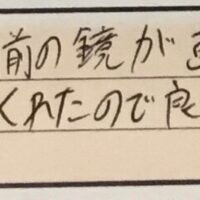 前の鏡が
くれたので良